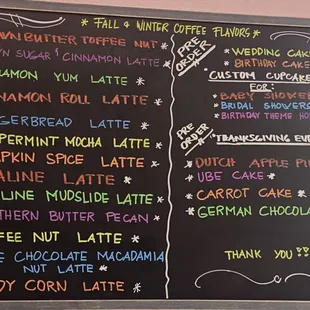 * FALL & WINTER COFFEE FLAVORS *
WN BUTTER TOFFEE NUT *
WN SUGAR & CINNAMON LATTE
AMON YUM LATTE *
NAMON ROLL LATTE *
GERBREAD LATTE *
PERMINT MOCHA LATTE *
PKIN SPICE LATTE *
ALINE LATTE *
LINE MUDSLIDE LATTE *
THERN BUTTER PECAN *
FEE NUT LATTE *
E CHOCOLATE MACADAMIA
NUT LATTE *
DY CORN LATTE *
PRE
ORDER
* WEDDING CAKE
* BIRTHDAY CAKE
"CUSTOM CUPCAKE
FOR:
* BABY SHOWER
* BRIDAL SHOWERS
* BIRTHDAY THEME
PRE
ORDER
"THANKSGIVING EVE
* DUTCH APPLE PI
* UBE CAKE *
* CARROT CAKE *
* GERMAN CHOCOLA
THANK YOU !!